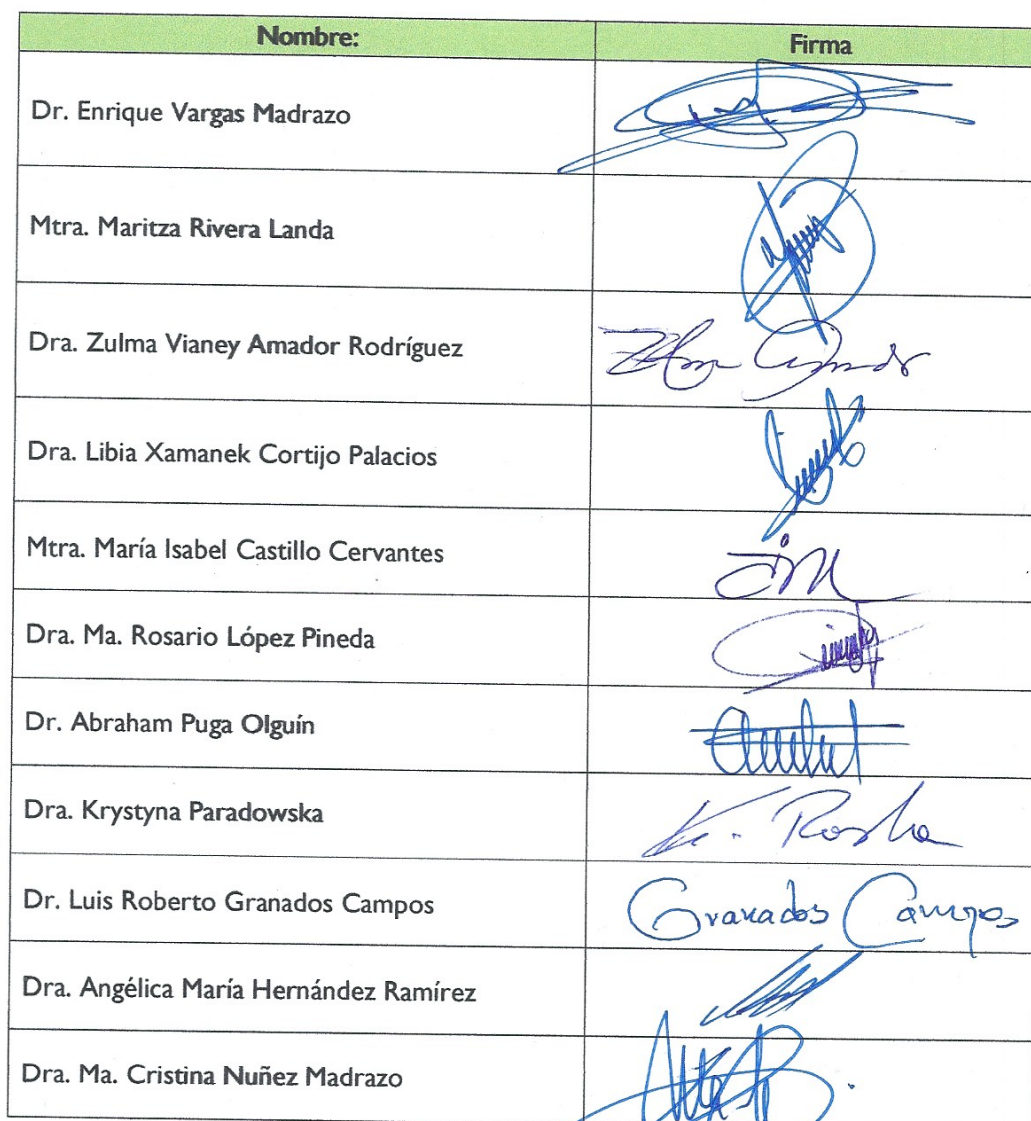 Nombre: Firma
Dr. Enrique Vargas Madrazo
Mtra. Maritza Rivera Landa
Dra. Zulma Vianey Amador Rodríguez
Dra. Libia Xamanek Cortijo Palacios
Mtra. María Isabel Castillo Cervantes
Dra. Ma. Rosario López Pineda
Dr. Abraham Puga Olguín
Dra. Krystyna Paradowska
Dr. Luis Roberto Granados Campos Granados Campos
Dra. Angélica María Hernández Ramírez
Dra. Ma. Cristina Nuñez Madrazo